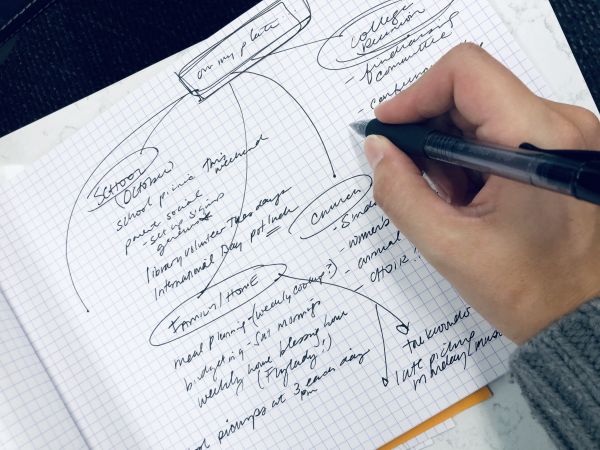 on my plate:
College
Reunion
- fundraising
committee
SCHOOL
OCTOBER
school picnic this
weekend
parent social
- set up signup
library volunteer Tuesdays
International Day potluck
CHURCH
- annual
- CHOIR
FAMILY/HOME
meal planning - (weekly cookup?)
budgeting - Sat mornings
weekly home blessing hour
(Flylady?)
pickups at 3 each day
pm
taekwondo
late pickup